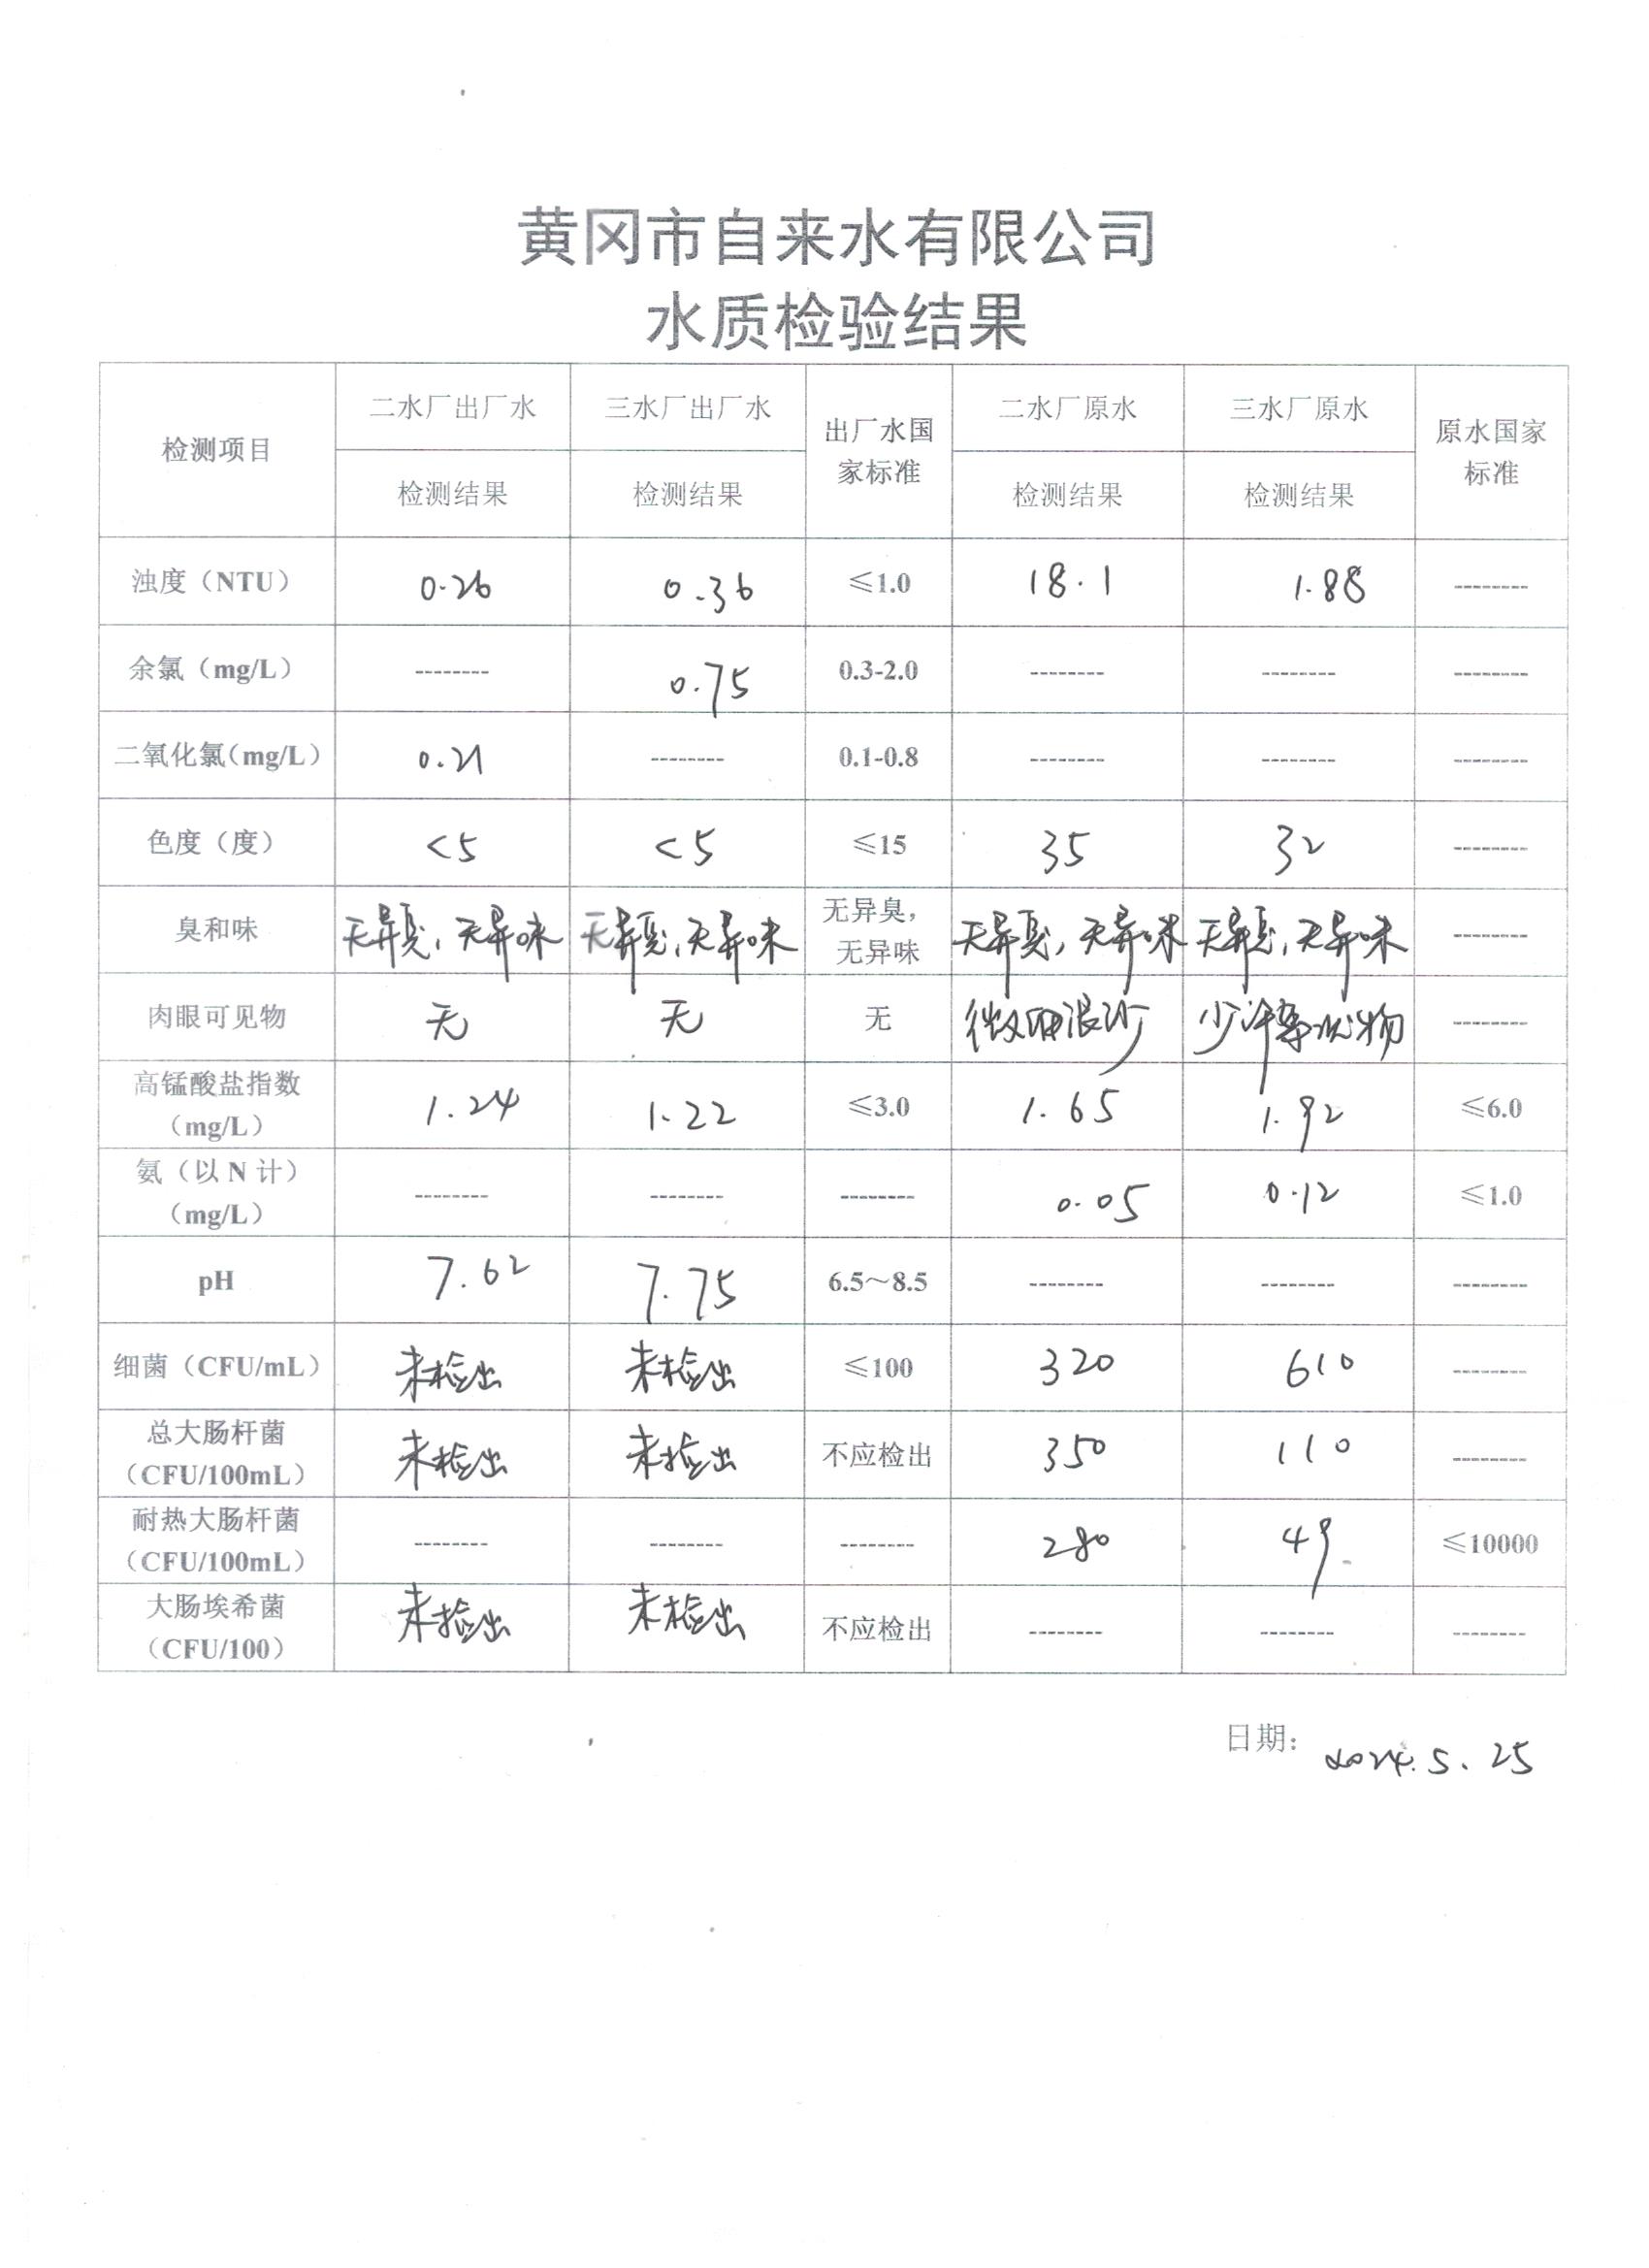 黄冈市自来水有限公司
水质检验结果
检测项目 二水厂出厂水 三水厂出厂水 出厂水国家标准 二水厂原水 三水厂原水 原水国家标准
检测结果 检测结果 检测结果 检测结果
浊度（NTU） 0.26 0.36 ≤1.0 18.1 1.88 --------
余氯（mg/L） -------- 0.75 0.3-2.0 -------- -------- --------
二氧化氯（mg/L） 0.21 -------- 0.1-0.8 -------- -------- --------
色度（度） <5 <5 ≤15 35 32 --------
臭和味 无异臭，无异味 无异臭，无异味 无异臭，无异味 无异臭，无异味 无异臭，无异味 --------
肉眼可见物 无 无 无 微细泥沙 少许悬浮物 --------
高锰酸盐指数（mg/L） 1.24 1.22 ≤3.0 1.65 1.92 ≤6.0
氨（以 N 计）（mg/L） -------- -------- -------- 0.05 0.12 ≤1.0
pH 7.62 7.75 6.5～8.5 -------- -------- --------
细菌（CFU/mL） 未检出 未检出 ≤100 320 610 --------
总大肠杆菌（CFU/100mL） 未检出 未检出 不应检出 350 110 --------
耐热大肠杆菌（CFU/100mL） -------- -------- -------- 280 49 ≤10000
大肠埃希菌（CFU/100） 未检出 未检出 不应检出 -------- -------- --------
日期： 2024.5.25